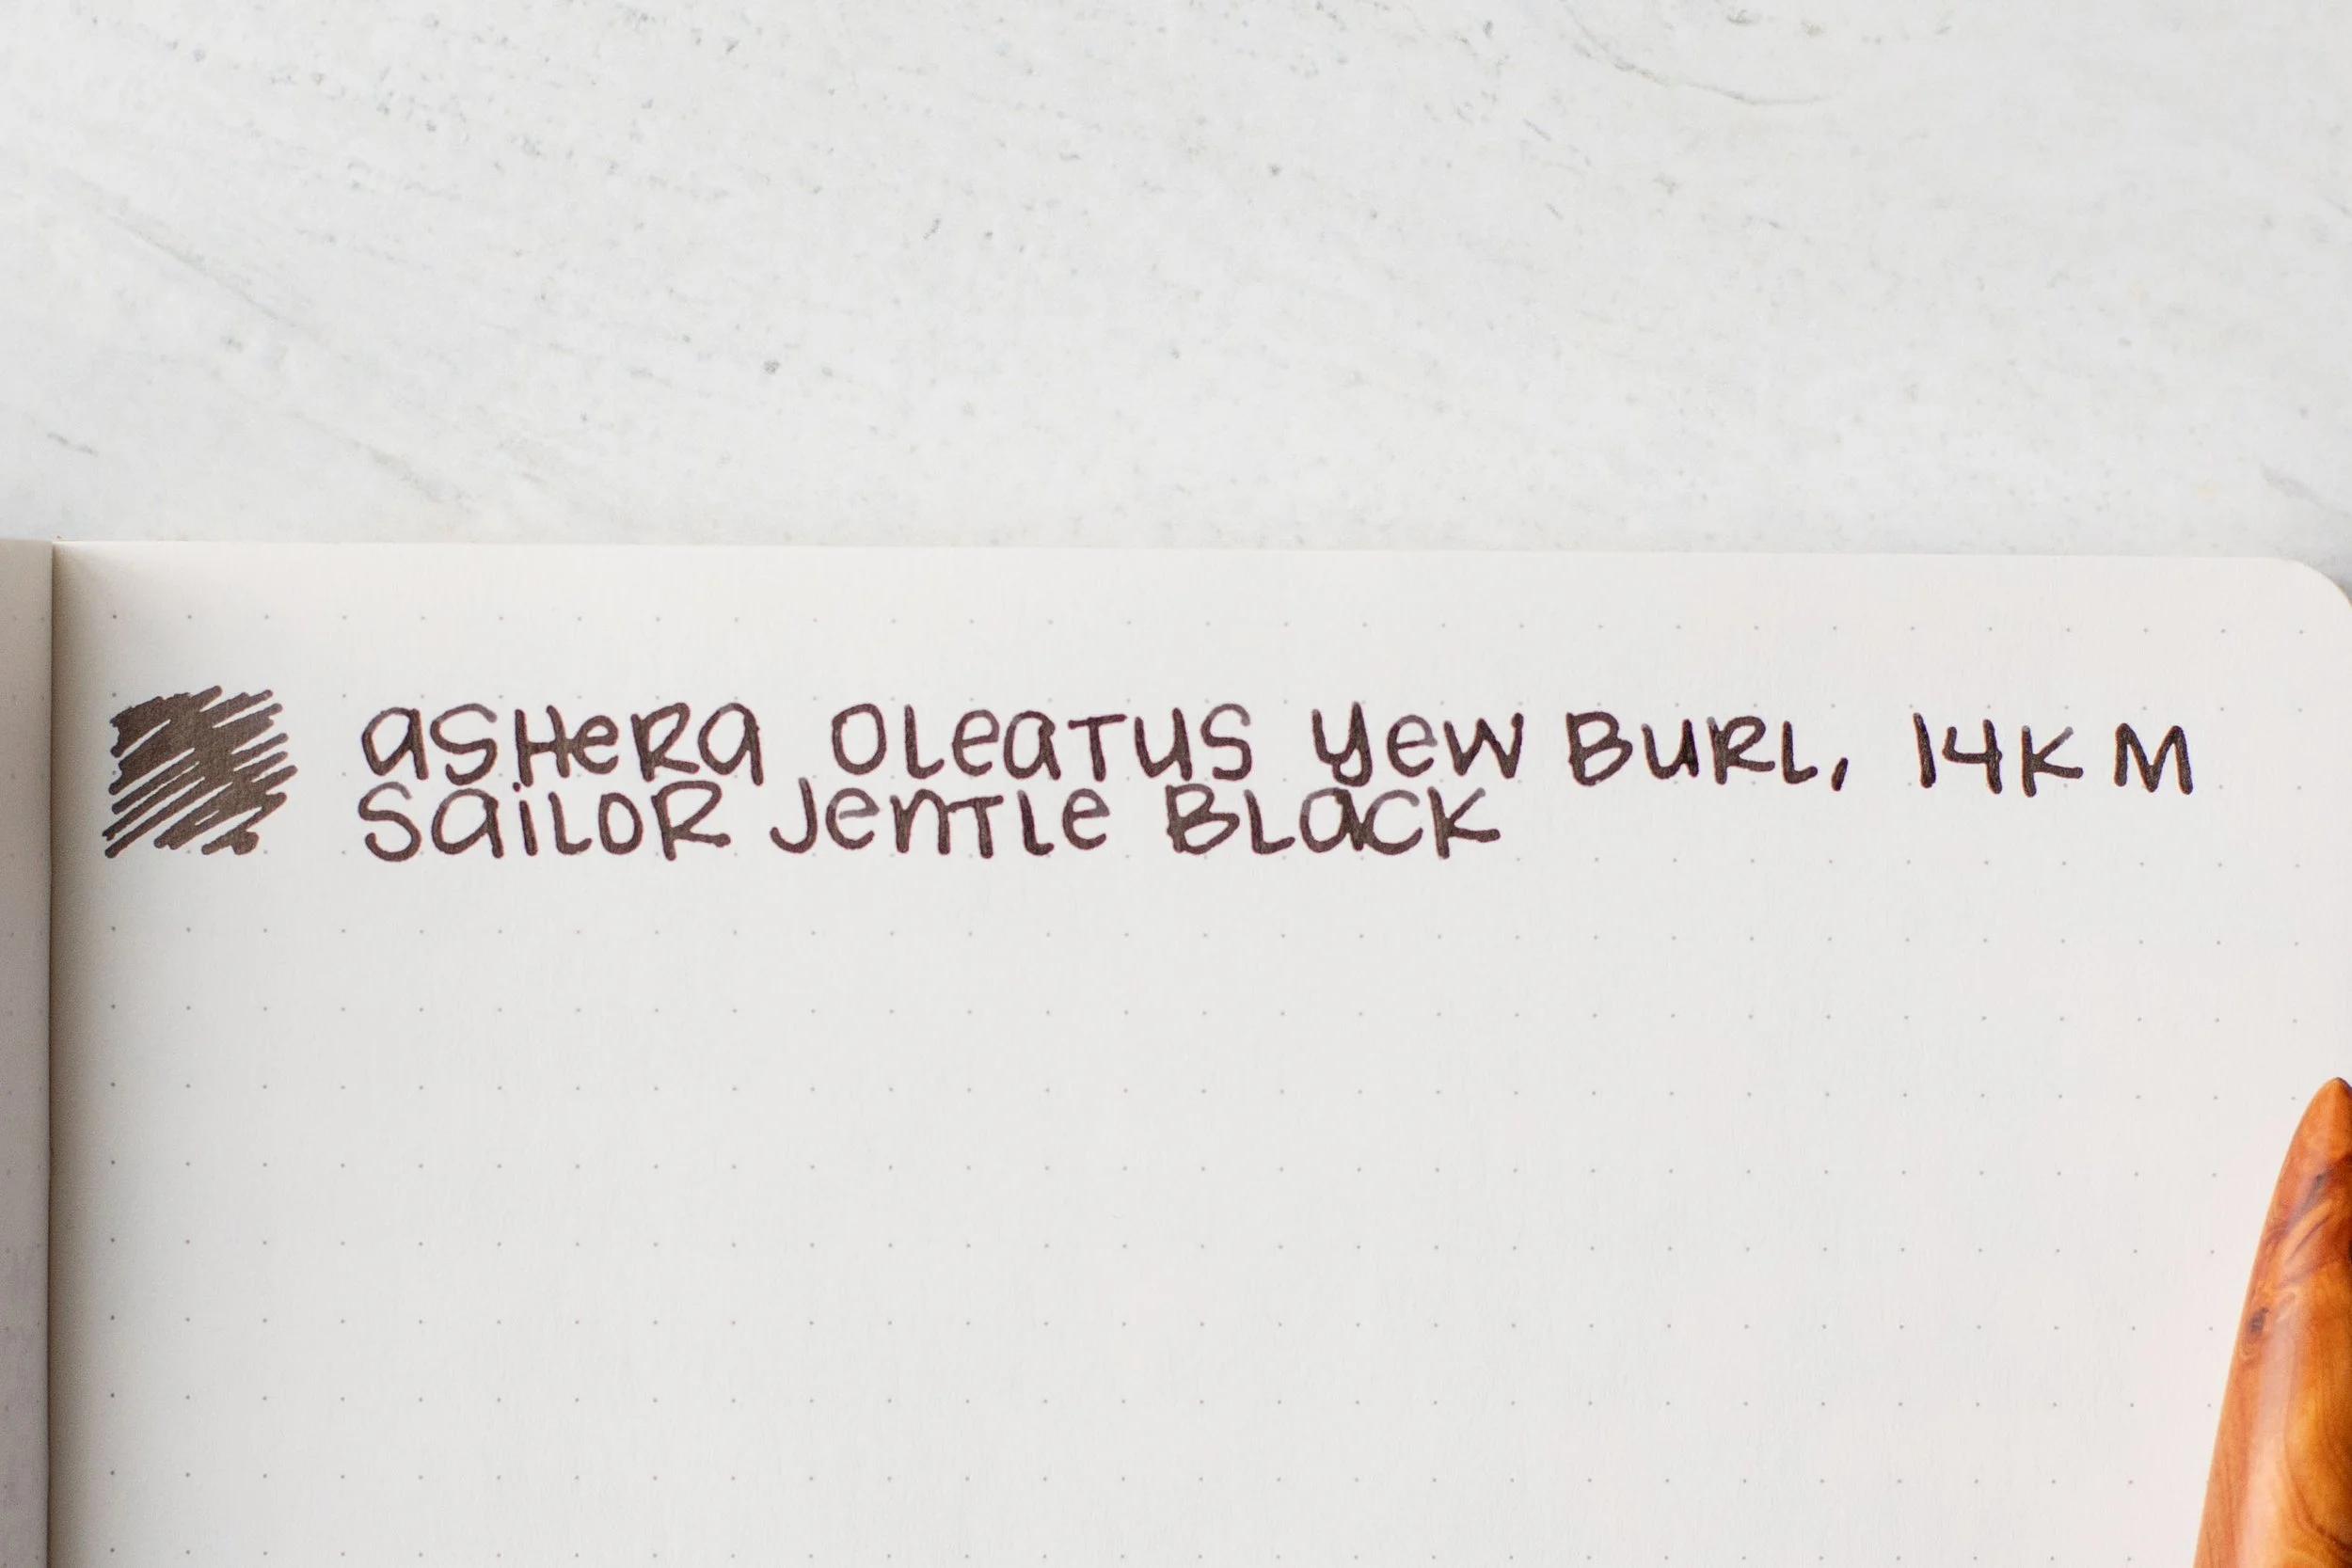 ASHERA OLEATUS YEW BURL, 14K M
SAILOR JENTLE BLACK